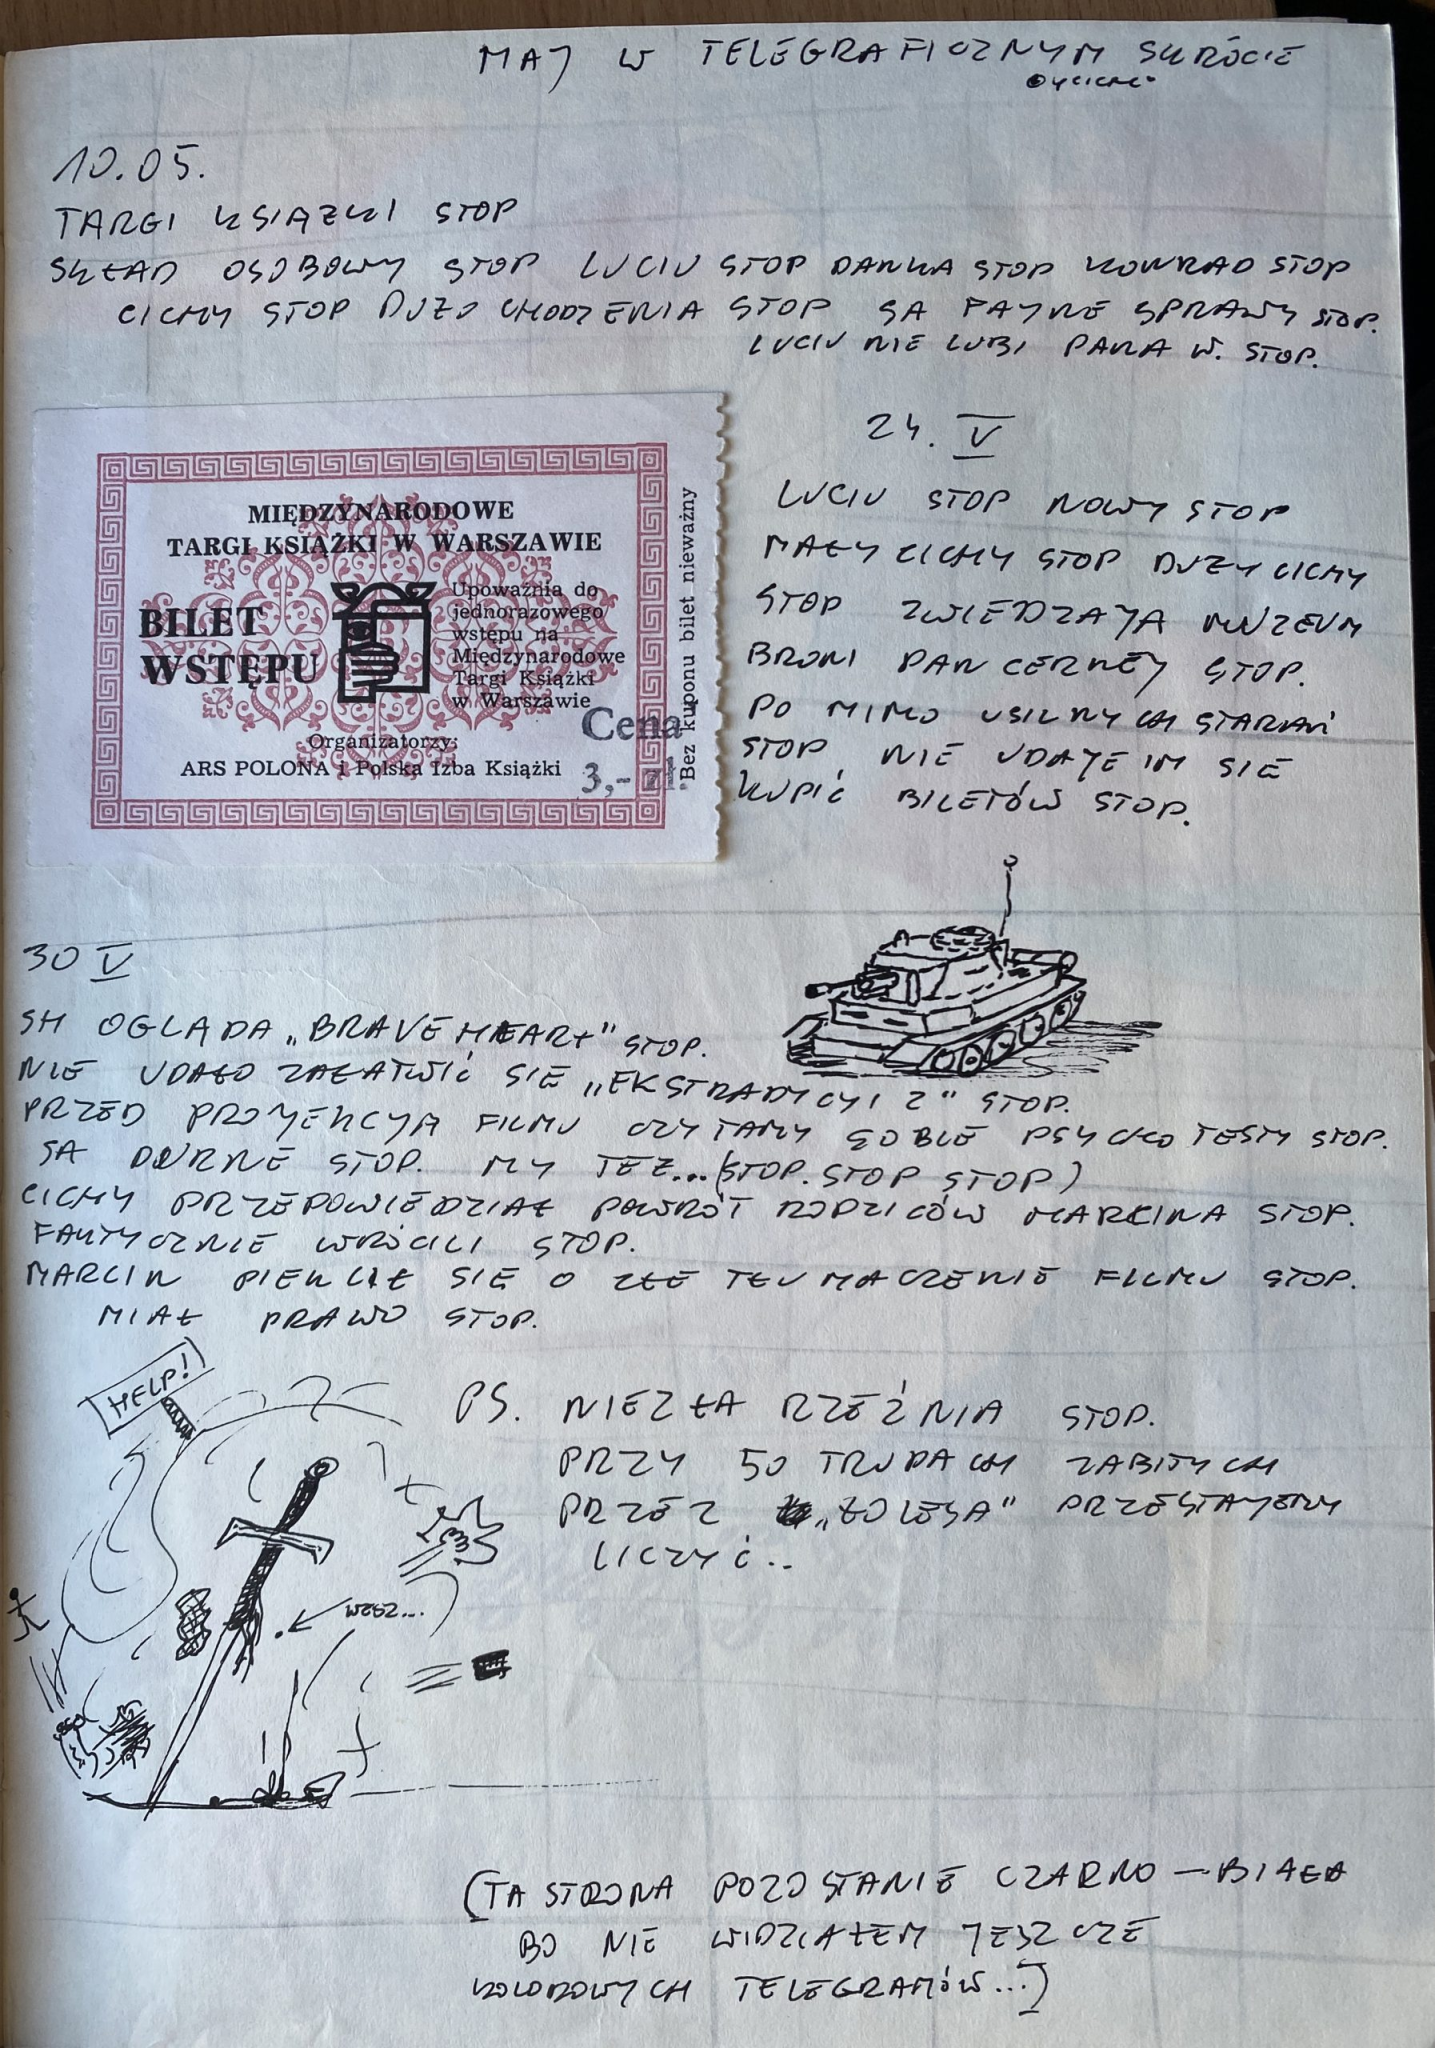 MAJ W TELEGRAFICZNYM SKRÓCIE
10.05.
TARGI KSIĄZKI STOP
SKŁAD OSOBOWY STOP LUCIU STOP DANKA STOP KONRAD STOP
CICHY STOP DUZO CHODZENIA STOP SĄ FAJNE SPRAWY STOP.
LUCIU NIE LUBI PANA W. STOP.
MIĘDZYNARODOWE
TARGI KSIĄŻKI W WARSZAWIE
BILET
WSTĘPU
Upoważnia do
jednorazowego
wstępu na
Międzynarodowe
Targi Książki
w Warszawie
Cena
3,- zł.
Organizatorzy:
ARS POLONA i Polska Izba Książki
Bez kuponu bilet nieważny
24. V
LUCIU STOP NOWY STOP
MAŁY CICHY STOP DUZY CICHY
STOP ZWIEDZAJĄ MUZEUM
BRONI PANCERNEJ STOP.
PO MIMO USILNYCH STARAŃ
STOP NIE UDAJE IM SIE
KUPIĆ BILETÓW STOP.
30 V
SH OGLĄDA „BRAVE HEART" STOP.
NIE UDAŁO ZAŁATWIĆ SIE „EKSTRADYCJI 2" STOP.
PRZED PROJEKCJĄ FILMU CZYTAMY SOBIE PSYCHOTESTY STOP.
SĄ DURNE STOP. MY TEZ...(STOP. STOP STOP)
CICHY PRZEPOWIEDZIAŁ POWRÓT RODZICÓW MARCINA STOP.
FAKTYCZNIE WRÓCILI STOP.
MARCIN PIEKLIŁ SIE O ZŁE TŁUMACZENIE FILMU STOP.
MIAŁ PRAWO STOP.
HELP!
WESZ...
PS. NIEZŁA RZEŹNIA STOP.
PRZY 50 TRUPACH ZABITYCH
PRZEZ „ŁOLESA" PRZESTAJEMY
LICZYĆ..
(TA STRONA POZOSTANIE CZARNO-BIAŁA
BO NIE WIDZIAŁEM JESZCZE
KOLOROWYCH TELEGRAMÓW...)